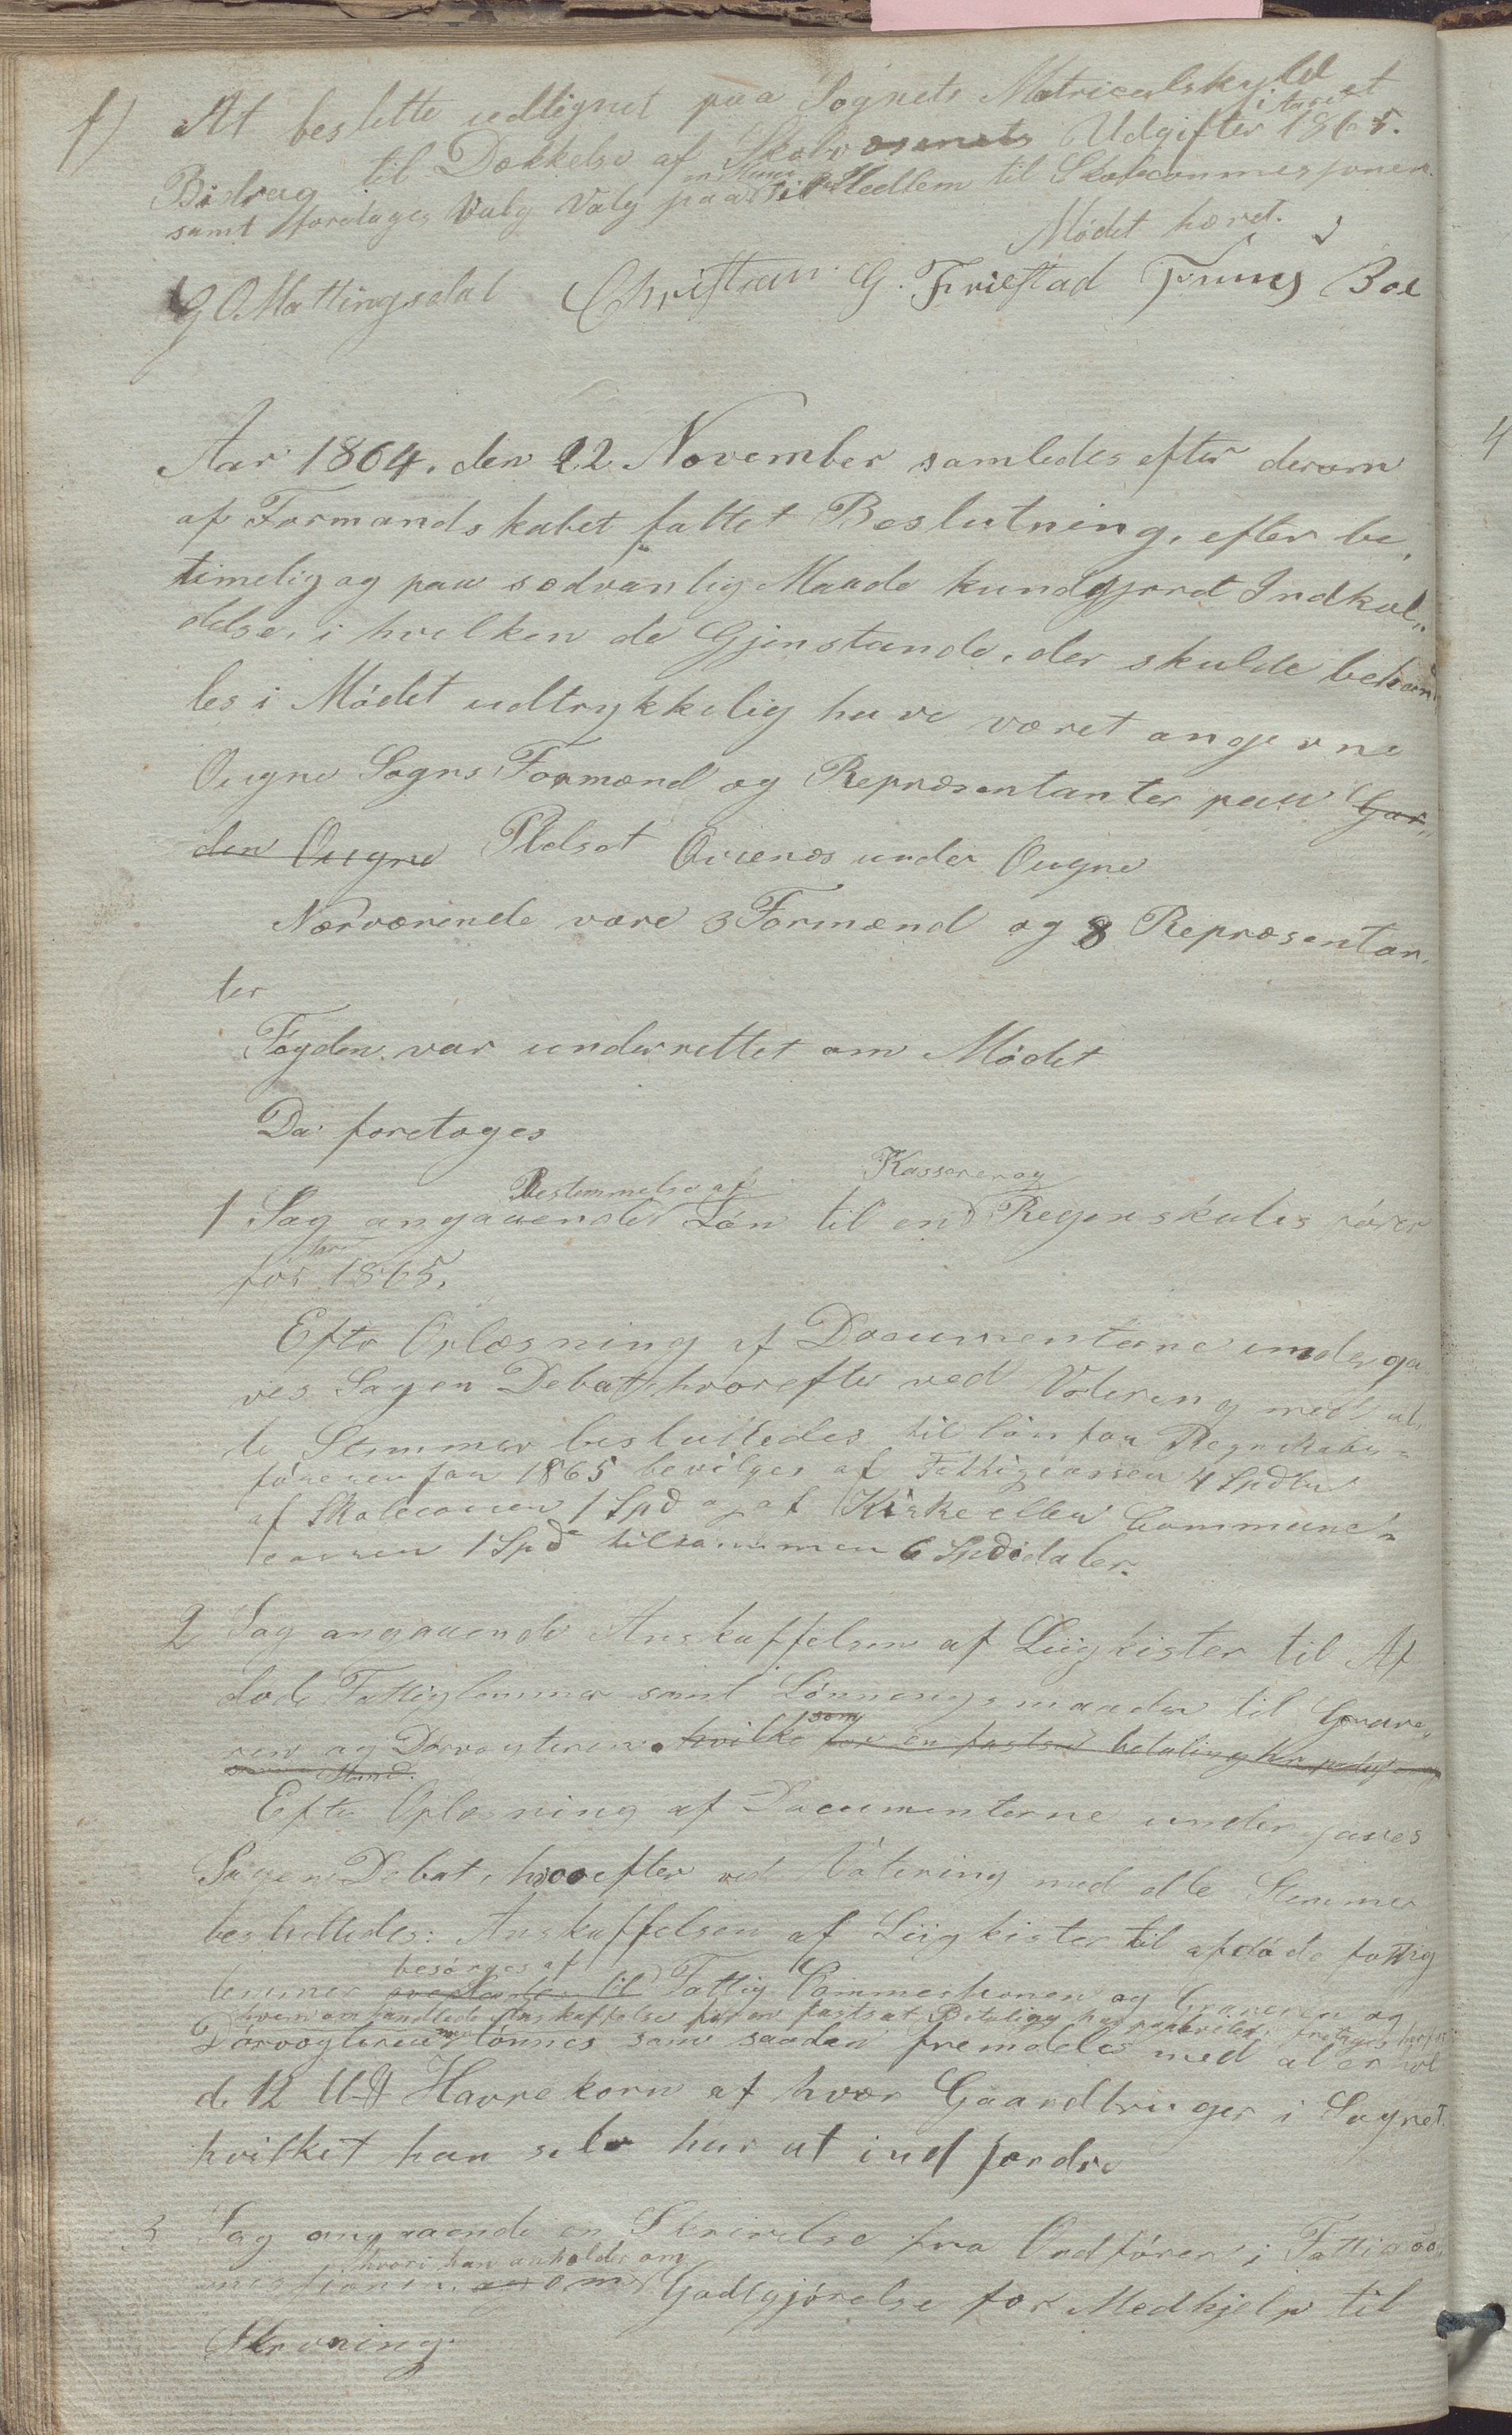 f) At beslutte udlignet paa Sognets Matriculskyld et
Bidrag til Dækkelse af Skolevæsenets Udgifter i Aaret 1865.
samt foretages Valg Valg paa en Mand til Medlem til Skolecommissionen.
Mødet hævet.
G O Mattingsdal Christian G. Friestad Tønnes Boe
Aar 1864. den 22 November samledes efter derom
af Formandskabet fattet Beslutning, efter be,
timelig og paa sedvanlig Maade kundgjort Indkal„
delse, i hvilken de Gjenstande, der skulde behand
les i Mødet udtrykkelig have været angivne
Ougne Sogns Formænd og Repræsentanter paa Gar„
den Ougne Pladset Qvienes under Ougne
Nærværende vare 3 Formænd og 8 Repræsentan,
ter
Fogden var underrettet om Mødet
Da foretoges
1 Sag angaaende Bestemmelse af Løn til en Kasserer og Regenskabsfører
for Aar 1865.
Efte Oplæsning af Documenterne underga
ves Sagen Debat, hvorefter ved Votering med al„
le Stemmer besluttedes til løn for Regnskabs„
føreren for 1865 bevilges af Fattigcassen 4 Spdlr
af Skolecassen 1 Spd og af Kirke eller Commune„
cassen 1 Spd tilsammen 6 Spdidaler.
2 Sag angaaende Anskaffelsen af Liigkister til Af
døde Fattiglemmer samt Lønningsmaaden til Grave„
ren og Dørvogteren. hvilke som for en fastsat betaling har
Stand.
Efter Oplæsning af Documenterne undergaves
Sagen Debat, hvorefter ved Votering med alle Stemmer
besluttedes: Anskaffelsen af Liigkister til afdøde fattig
lemmer overlades til besørges af Fattig Commissionen og Graveren og
hvem omhandlede Anskaffelse for en fastsat Betaling har
Dørvogteren lønnes som saadan fremdeles med at erhol
de 12 U Havrekorn af hver Gaardbruger i Sognet
hvilket han selv har at indfordre
3 Sag angaaende en Skrivelse fra Ordfører i Fattigco„
missionen, og om hvori han anholder om Godtgjørelse for Medhjelp til
Skrivning.
4